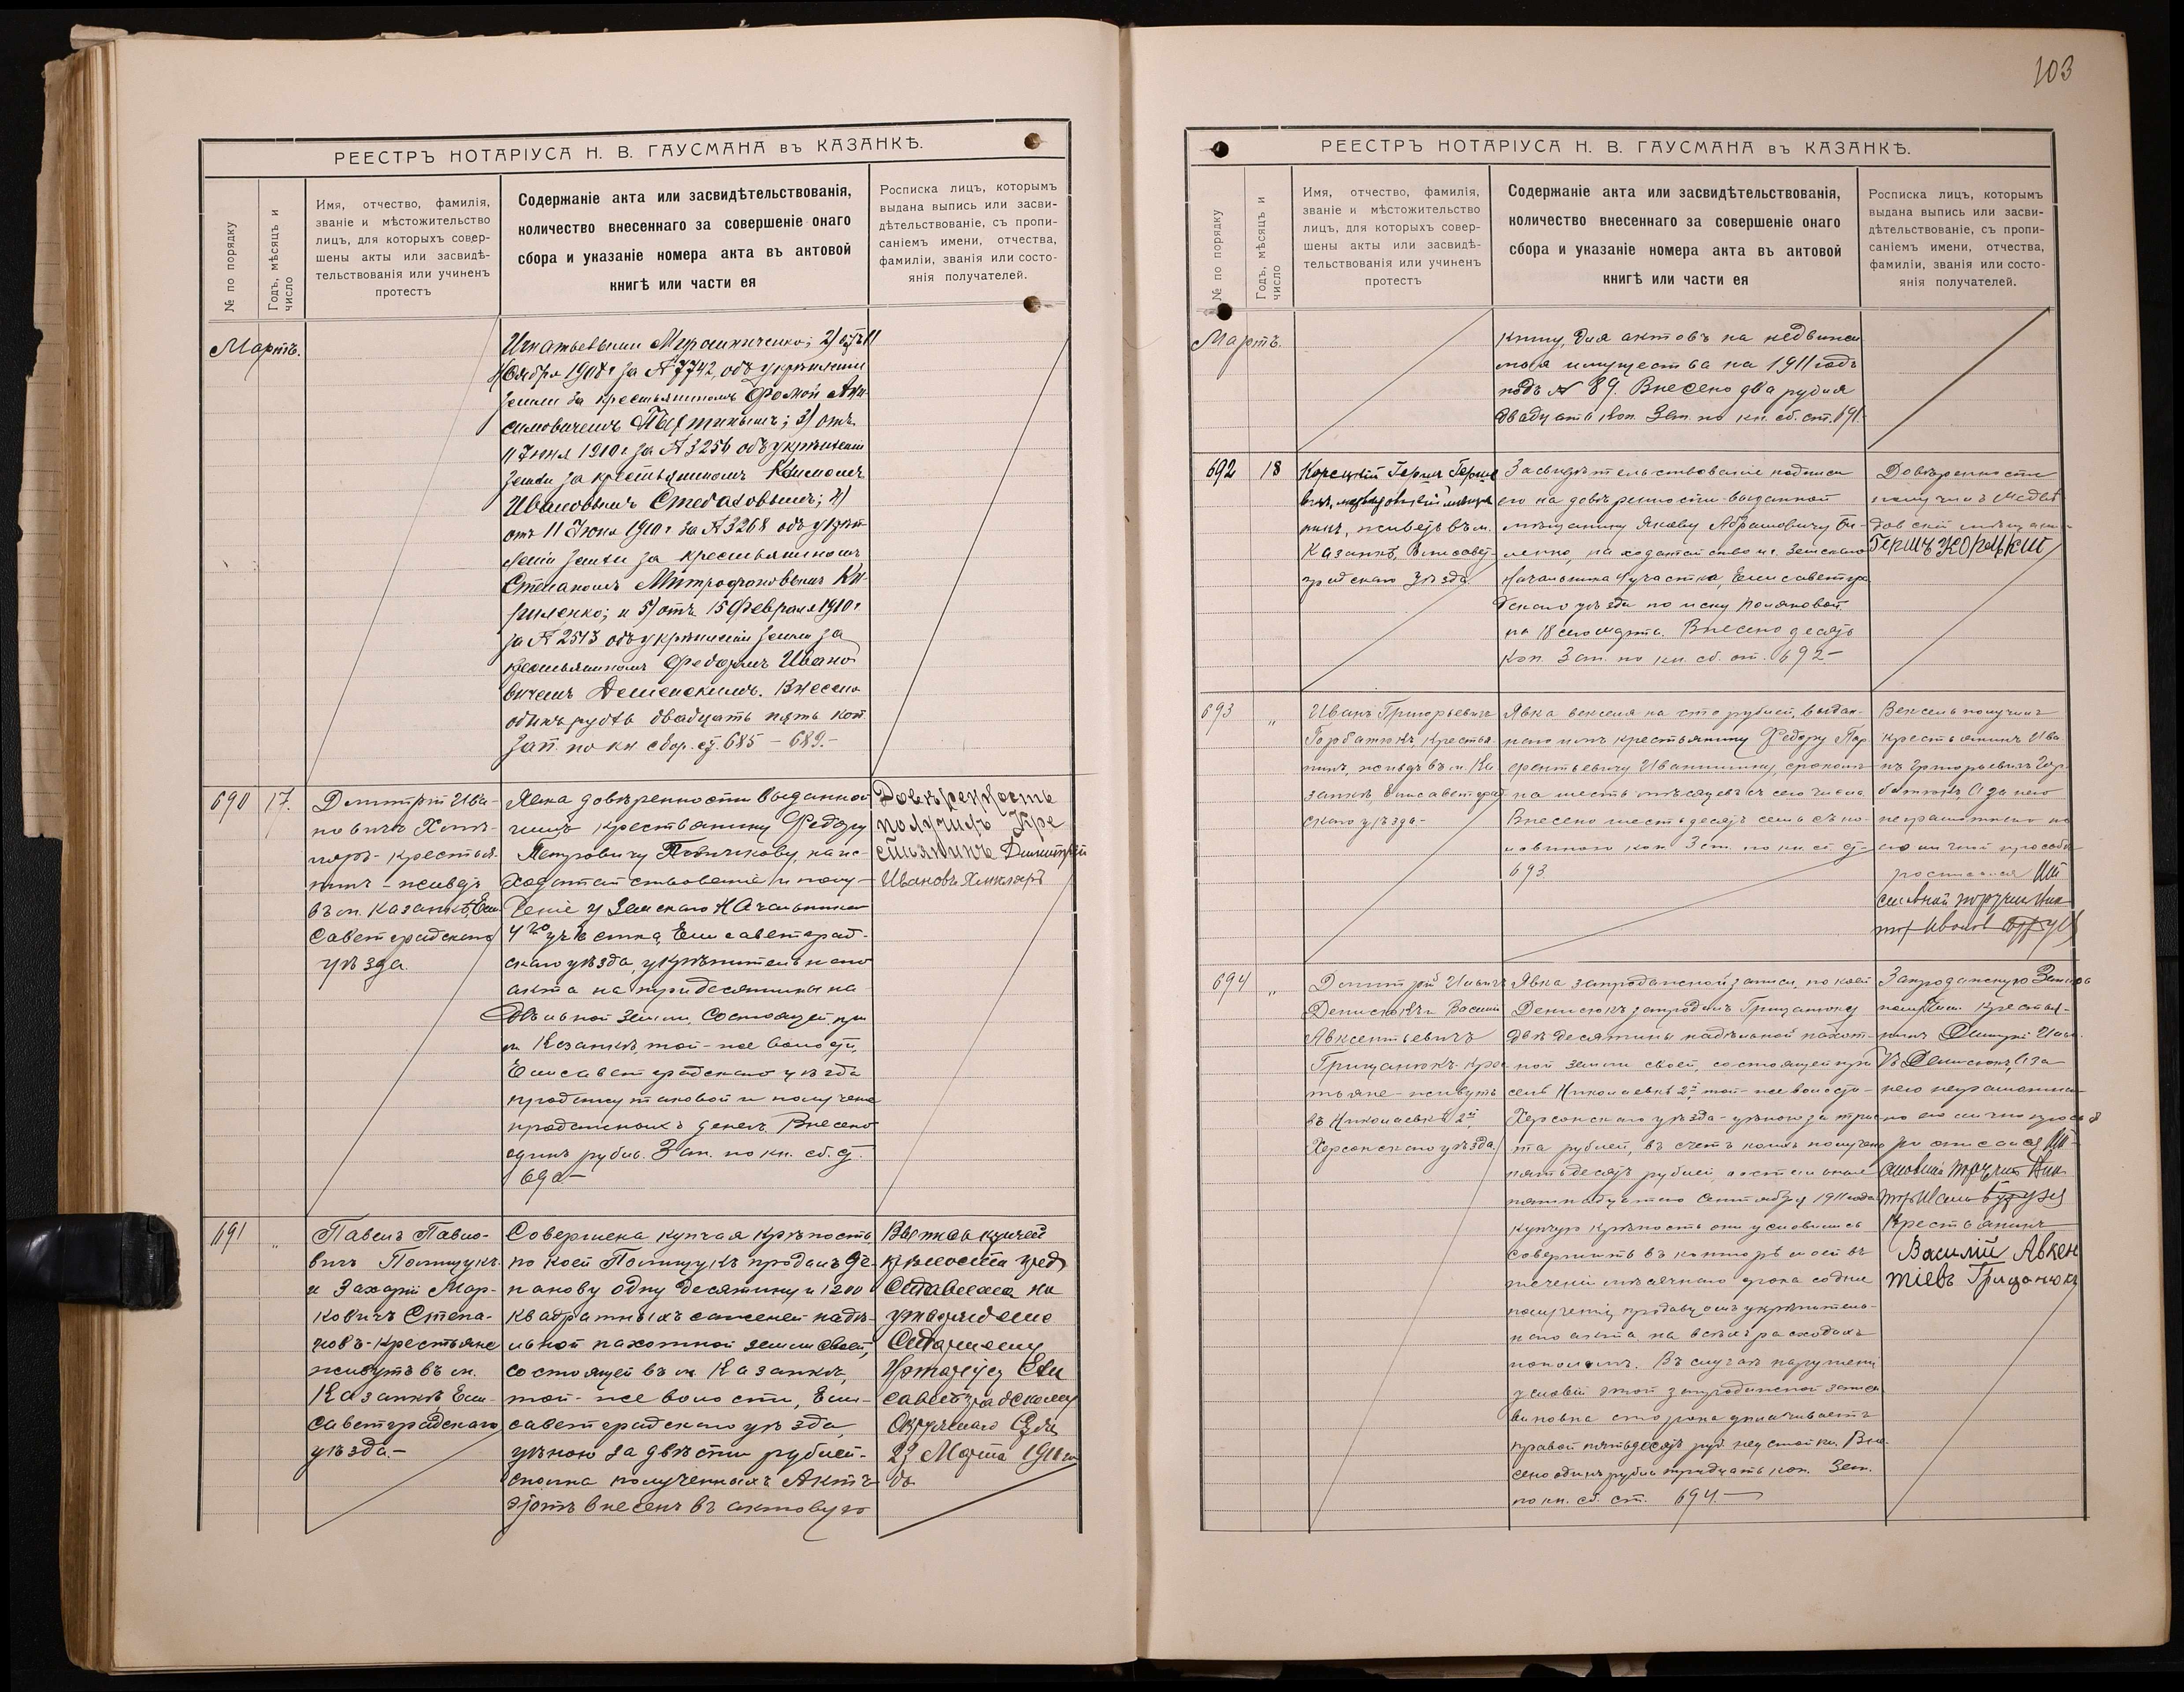 РЕЕСТРЪ НОТАРІУСА Н. В. ГАУСМАНА въ КАЗАНКѢ.
№ по порядку
Годъ, мѣсяцъ и
число
Имя, отчество, фамилія,
званіе и мѣстожительство
лицъ, для которыхъ совер-
шены акты или засвидѣ-
тельствованія или учиненъ
протестъ
Содержаніе акта или засвидѣтельствованія,
количество внесеннаго за совершеніе онаго
сбора и указаніе номера акта въ актовой
книгѣ или части ея
Росписка лицъ, которымъ
выдана выпись или засви-
дѣтельствованіе, съ пропи-
саніемъ имени, отчества,
фамиліи, званія или состо-
янія получателей.
Мартъ.
Игнатьевымъ Мирошниченко; 2) отъ 11
Ноября 1908 г за № 7742, объ укрѣпленіи
земли за крестьяниномъ Фомой Ани-
симовичемъ; 3) отъ
11 Іюня 1910 г за № 3254 объ укрѣпленіи
земли за крестьяниномъ
Ивановымъ; 4)
отъ 11 Іюня 1910 г за № 3268 объ укрѣп-
леніи земли за крестьяниномъ
Степаномъ Митрофановымъ Ки-
риленко; и 5) отъ 15 Февраля 1910 г
за № 2543 объ укрѣпленіи земли за
крестьяниномъ Федоромъ Ивано-
вичемъ. Внесено
одинъ рубль двадцать пять коп.
Зап. по кн сбор. ст. 685 - 689.-
690
17.
Димитрій Ива-
новичъ
крестья-
нинъ - живетъ
въ м. Казанкѣ, Ели-
саветградскаго
уѣзда.
Явка довѣренности выданной
имъ крестьянину Федору
Петровичу, на ис-
ходатайствованіе и полу-
ченіе у Земскаго Начальника
4го участка, Елисаветград-
скаго уѣзда, укрѣпительнаго
акта на три десятины на-
дѣльной земли, состоящей при
м. Казанкѣ, той-же волости,
Елисаветградскаго уѣзда
продажу таковой и полученіе
продажныхъ денегъ. Внесено
одинъ рубль. Зап. по кн. сб. ст.
690-
Довѣренность
получилъ Кре
стьянинъ Димитрій
Ивановъ
691
"
Павелъ Павло-
вичъ Полищукъ
и Захарій Мар-
ковичъ Степа-
новъ - крестьяне
живутъ въ м.
Казанкѣ, Ели-
саветградскаго
уѣзда.-
Совершена купчая крѣпость
по коей Полищукъ продалъ Сте-
панову одну десятину и 1200
квадратныхъ саженей надѣ-
льной пахотной земли своей,
состоящей въ м. Казанкѣ,
той-же волости, Ели-
саветградскаго уѣзда,
цѣною за двѣсти рублей-
сполна полученныхъ Актъ
этотъ внесенъ въ актовую
Выпись купчей
крѣпости пред
ставлена на
утвержденіе
Старшему
Нотаріусу Ели
саветградскаго
Окружнаго Суда
23 Марта 1911 го
да
103
РЕЕСТРЪ НОТАРІУСА Н. В. ГАУСМАНА въ КАЗАНКѢ.
№ по порядку
Годъ, мѣсяцъ и
число
Имя, отчество, фамилія,
званіе и мѣстожительство
лицъ, для которыхъ совер-
шены акты или засвидѣ-
тельствованія или учиненъ
протестъ
Содержаніе акта или засвидѣтельствованія,
количество внесеннаго за совершеніе онаго
сбора и указаніе номера акта въ актовой
книгѣ или части ея
Росписка лицъ, которымъ
выдана выпись или засви-
дѣтельствованіе, съ пропи-
саніемъ имени, отчества,
фамиліи, званія или состо-
янія получателей.
Мартъ.
книгу для актовъ на недвижи
мыя имущества на 1911 годъ
подъ № 89. Внесено два рубля
двадцать коп. Зап. по кн. сб. ст. 691-
692
18
Корецкій Гершъ
мѣща
нинъ, живетъ въ м.
Казанкѣ, Елисавет-
градскаго уѣзда
Засвидѣтельствованіе подписи
его на довѣренности выданной
мѣщанину Якову Абрамовичу Би-
ленко, на ходатайство у г. Земскаго
Начальника участка, Елисаветград
скаго уѣзда по иску
на 18 сего марта. Внесено десять
коп. Зап. по кн. сб. ст. 692-
Довѣренность
получилъ
мѣщани-
Гершъ КОРецКій
693
"
Иванъ Григорьевичъ
Горбатюкъ, крестья-
нинъ, живетъ въ м. Ка
занкѣ, Елисаветград
скаго уѣзда.-
Явка векселя на сто рублей, выдан-
наго имъ крестьянину Федору Пар
фентьевичу Иванишину, срокомъ
на шесть мѣсяцевъ съ сего числа.
Внесено шестьдесятъ семь съ по-
ловиною коп Зап. по кн. сб. ст-
693
Вексель получилъ
крестьянинъ Ива
нъ Григорьевичъ Гор
батюкъ, а за него
неграмотнаго по
его личной просьбѣ
росписался
694
"
Димитрій
Денисюкъ и Василій
Авксентьевичъ
Грицанюкъ - кре
стьяне - живутъ
въ Николаевкѣ 2й
Херсонскаго уѣзда
Явка запродажной записи, по коей
Денисюкъ запродалъ Грицанюку
двѣ десятины надѣльной пахот-
ной земли своей, состоящей при
селѣ Николаевкѣ 2й, той-же волости-
Херсонскаго уѣзда - цѣною за трис
та рублей, въ счетъ коихъ получено
пятьдесятъ рублей, остальные
пятнадцатаго Сентября 1911 года
купчую крѣпость они условились
совершить въ конторѣ моей въ
теченіи мѣсячнаго срока со дня
полученія продавцомъ укрѣпитель-
наго акта на всѣхъ расходахъ
пополамъ. Въ случаѣ нарушенія
условій этой запродажной записи
виновная сторона уплачиваетъ
правой пятьдесятъ руб. неустойки. Вне-
сено одинъ рубль тридцать коп. Зап.
по кн. сб. ст. 694.-
Запродажную Запись
получили Крестья-
нинъ Димитрій
Денисюкъ, а за
него неграмотнаго
по его личной просьбѣ
росписался
Крестьянинъ
Василій Авкен
тіевъ Грицанюкъ